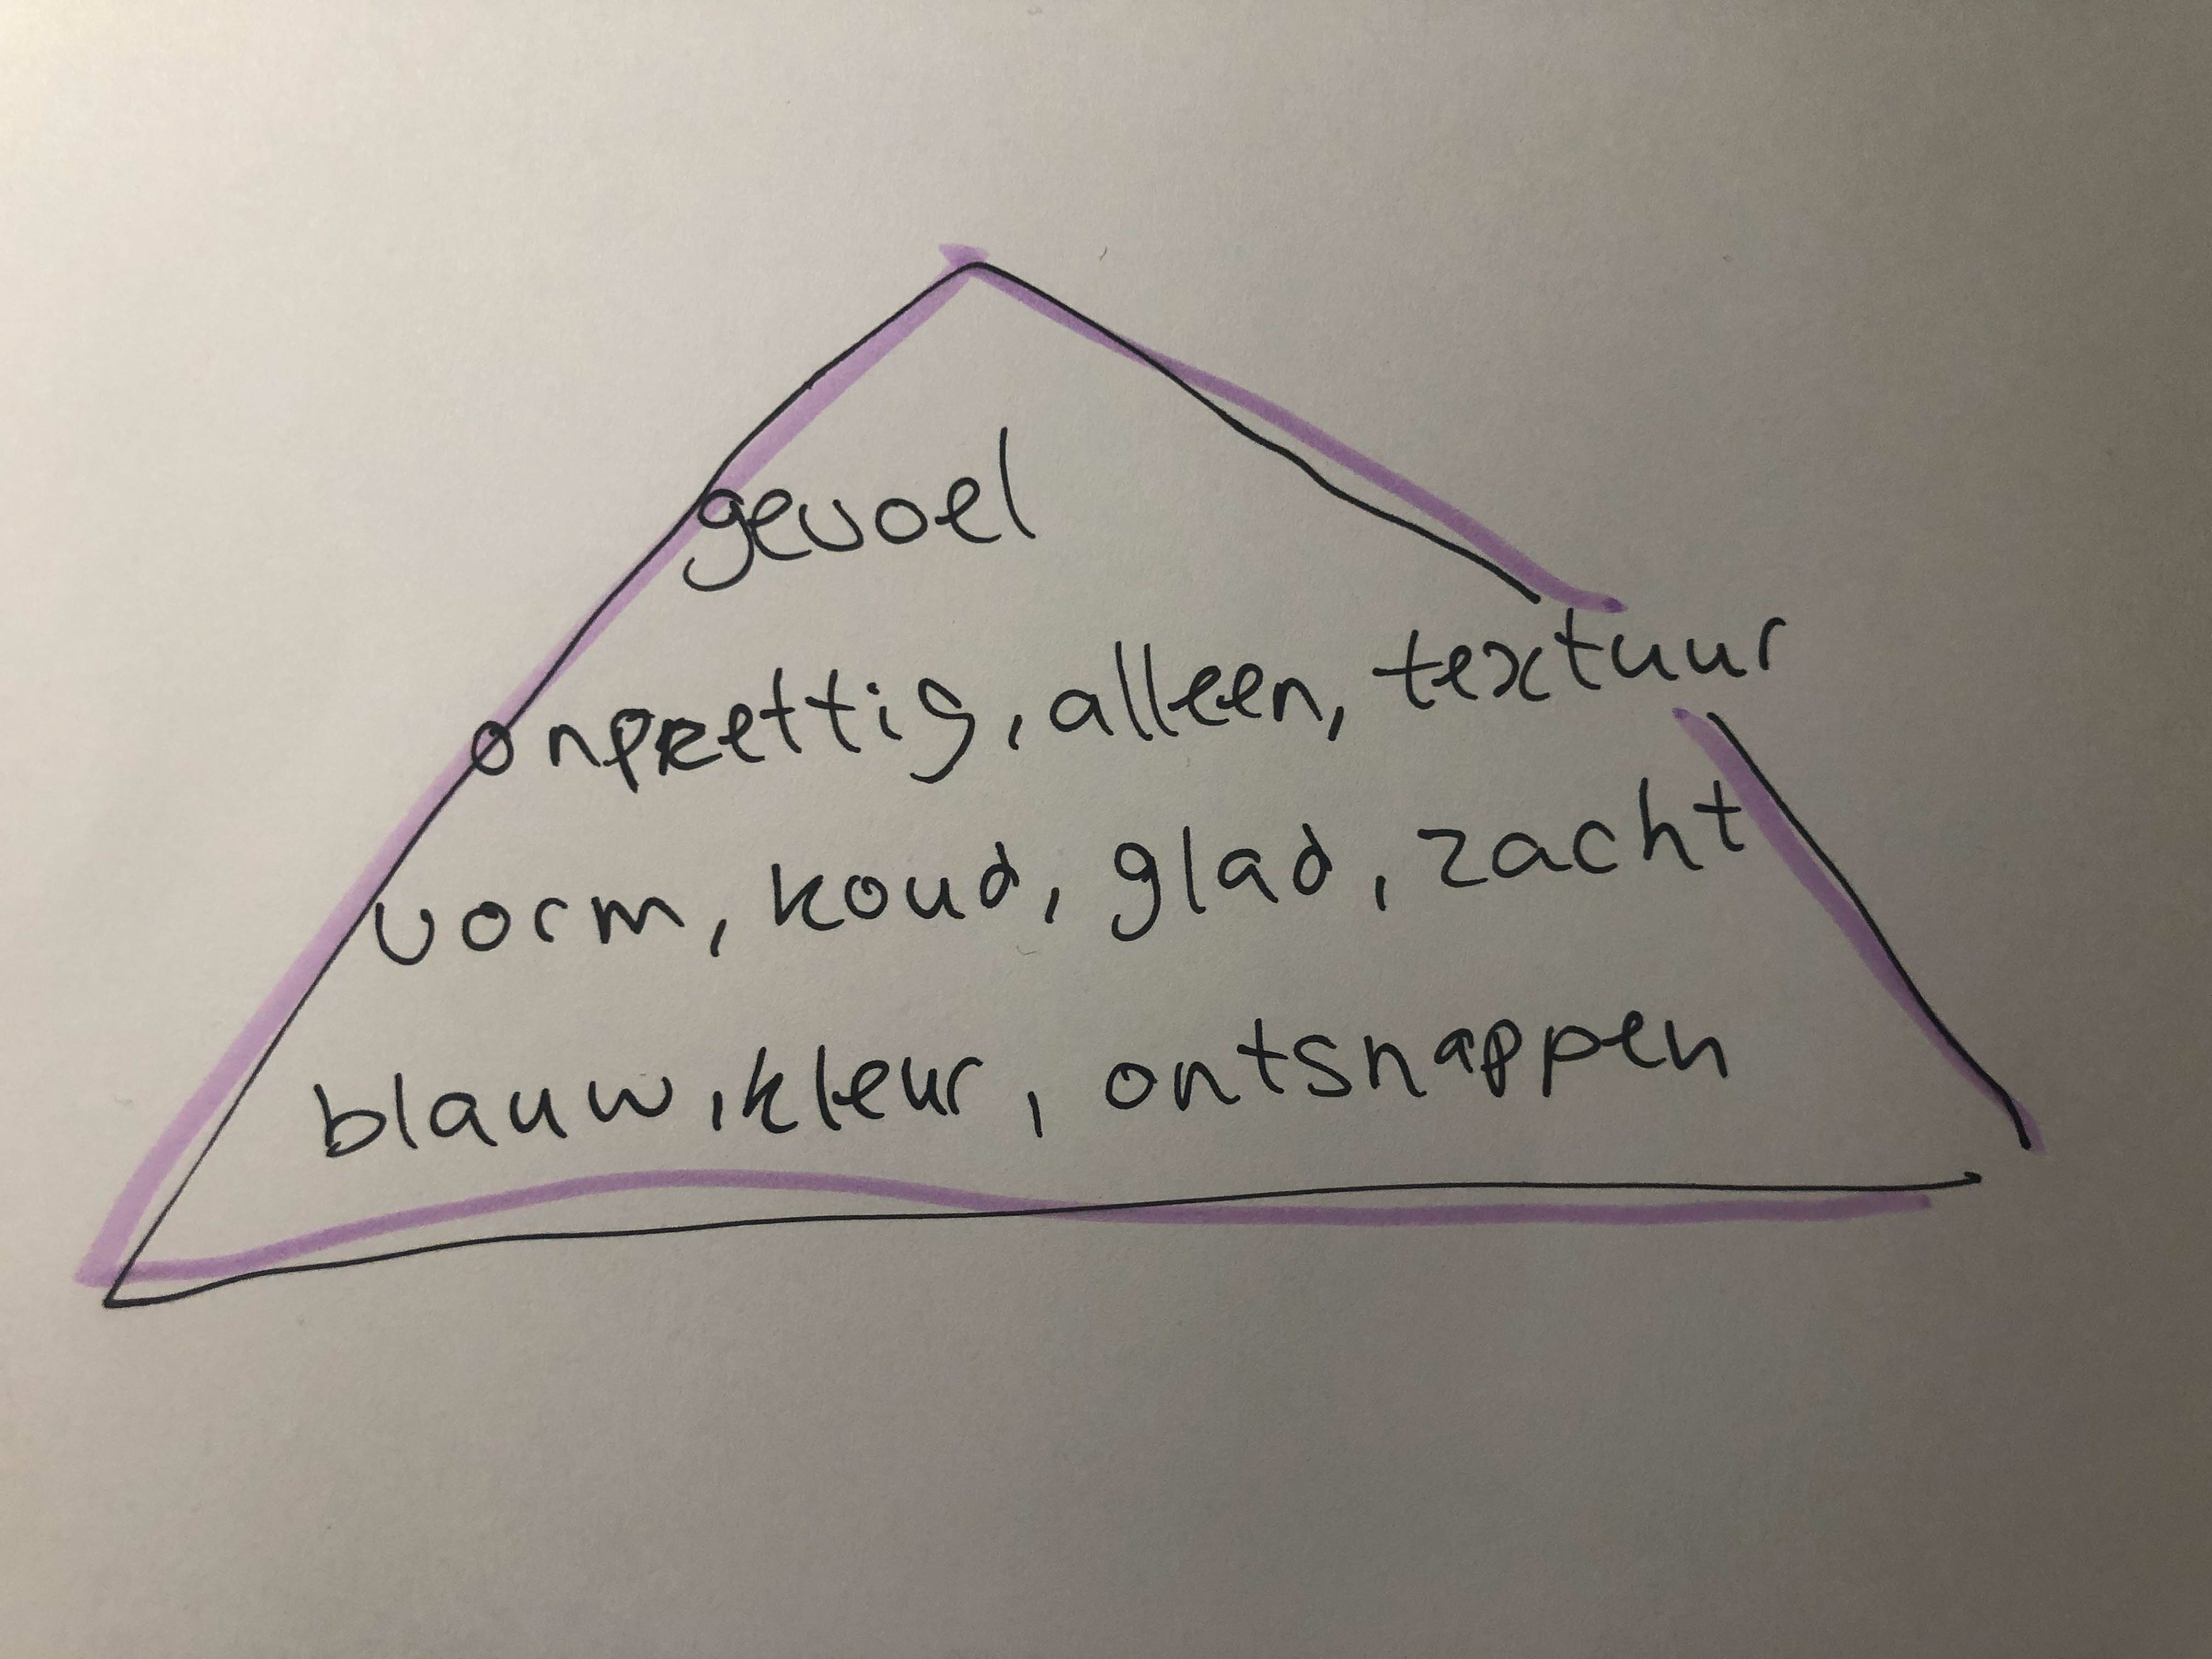 gevoel
onprettig, alleen, textuur
vorm, koud, glad, zacht
blauw, kleur, ontsnappen